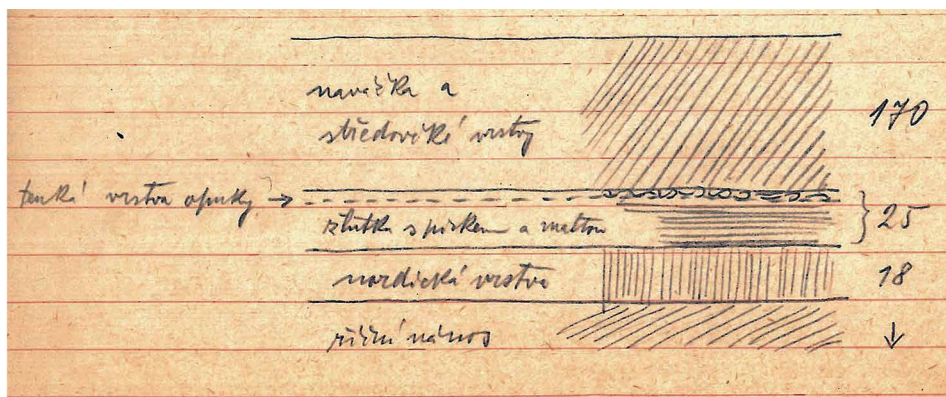 navážka a
středověké vrstvy
170
tenká vrstva opuky →
žlutka s pískem a maltou
25
nordická vrstva
18
říční nános
↓